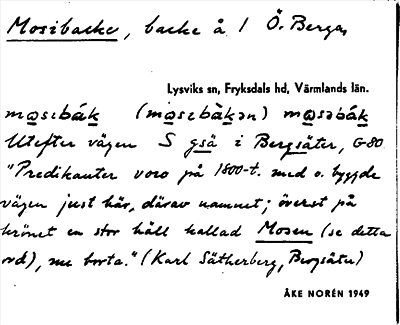 Mosibacke, backe å 1 Ö. Berga,
Lysviks sn, Fryksdals hd, Värmlands län.
mo̲sɩbák̲ (mo̲sɩbàk̲ən) mo̲səbák̲
Utefter vägen S gså i Bergsäter, G-80
"Predikanter voro på 1800-t. med o. byggde
vägen just här, därav namnet; överst på
krönet en stor häll kallad Mosen (se detta
ord), nu borta." (Karl Sätherberg, Bergsäter)
ÅKE NORÉN 1949